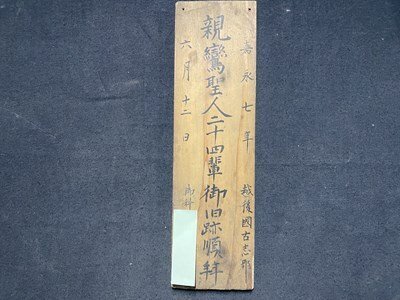 嘉永七年
越後國古志郡
親鸞聖人二十四輩御旧跡順拜
六月十二日